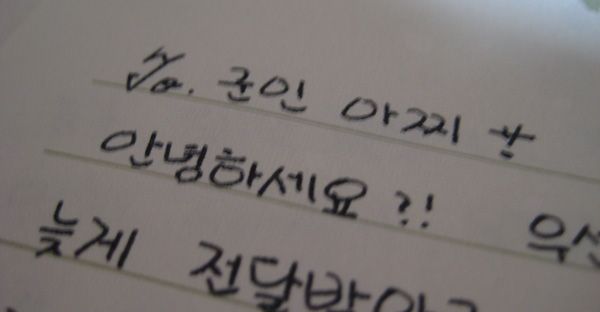 To. 군인 아찌 
안녕하세요?! 우선
늦게 전달받아